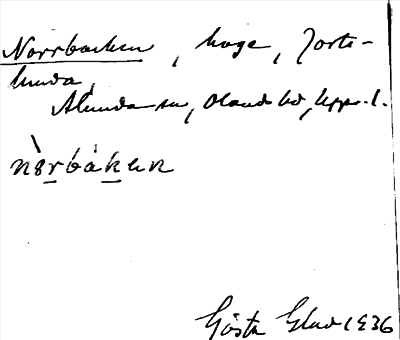 Norrbacken, hage, Torte-
lunda,
Alunda sn, Olands hd, Upps. l.
nòrbáken
Gösta Glad 1936